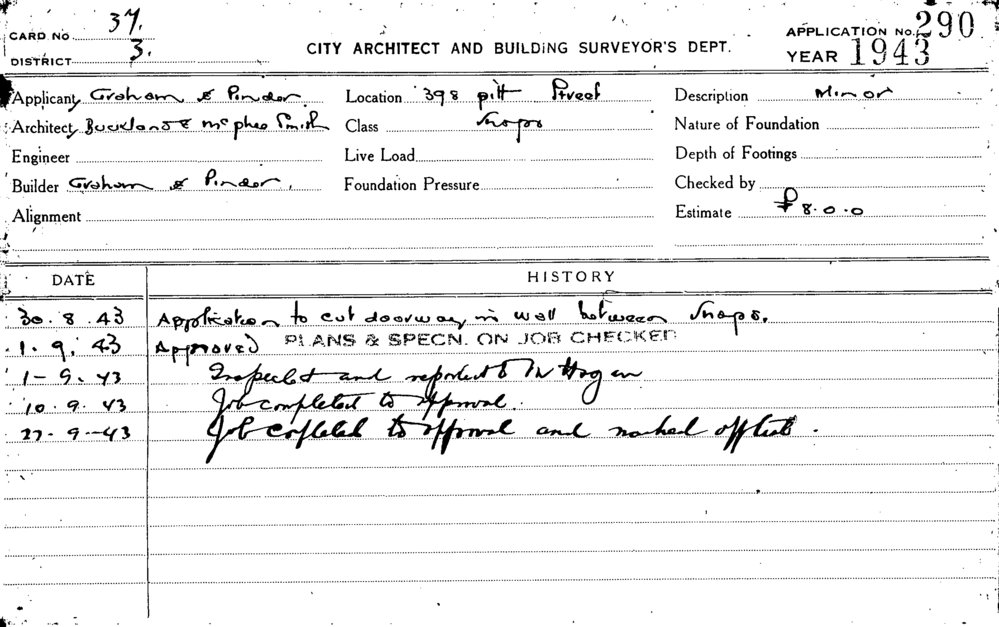 CARD NO. 37.
DISTRICT 3.
CITY ARCHITECT AND BUILDING SURVEYOR'S DEPT.
APPLICATION NO. 290
YEAR 1943
Applicant Graham & Pinder
Location 398 pitt Street
Description Minor
Architect Buckland & McPhee Smith
Class Shops
Nature of Foundation
Engineer
Live Load
Depth of Footings
Builder Graham & Pinder.
Foundation Pressure
Checked by
Alignment
Estimate £8.0.0
DATE
HISTORY
30.8.43 Application to cut doorway in wall between Shops.
1.9.43 Approved PLANS & SPECN. ON JOB CHECKED
1-9.43 Inspected and reported to Mr Hogan
10.9.43 Job completed to approval.
27.9-43 Job completed to approval and marked off list.